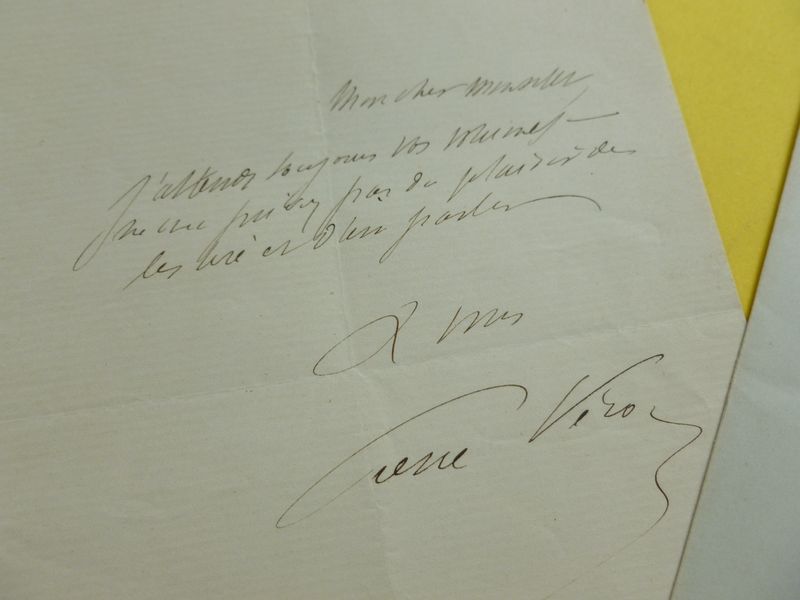 Mon cher Monsieur
J'attends toujours vos volumes –
Ne me privez pas du plaisir de
les lire et d'en parler
A vous
Pierre Véron